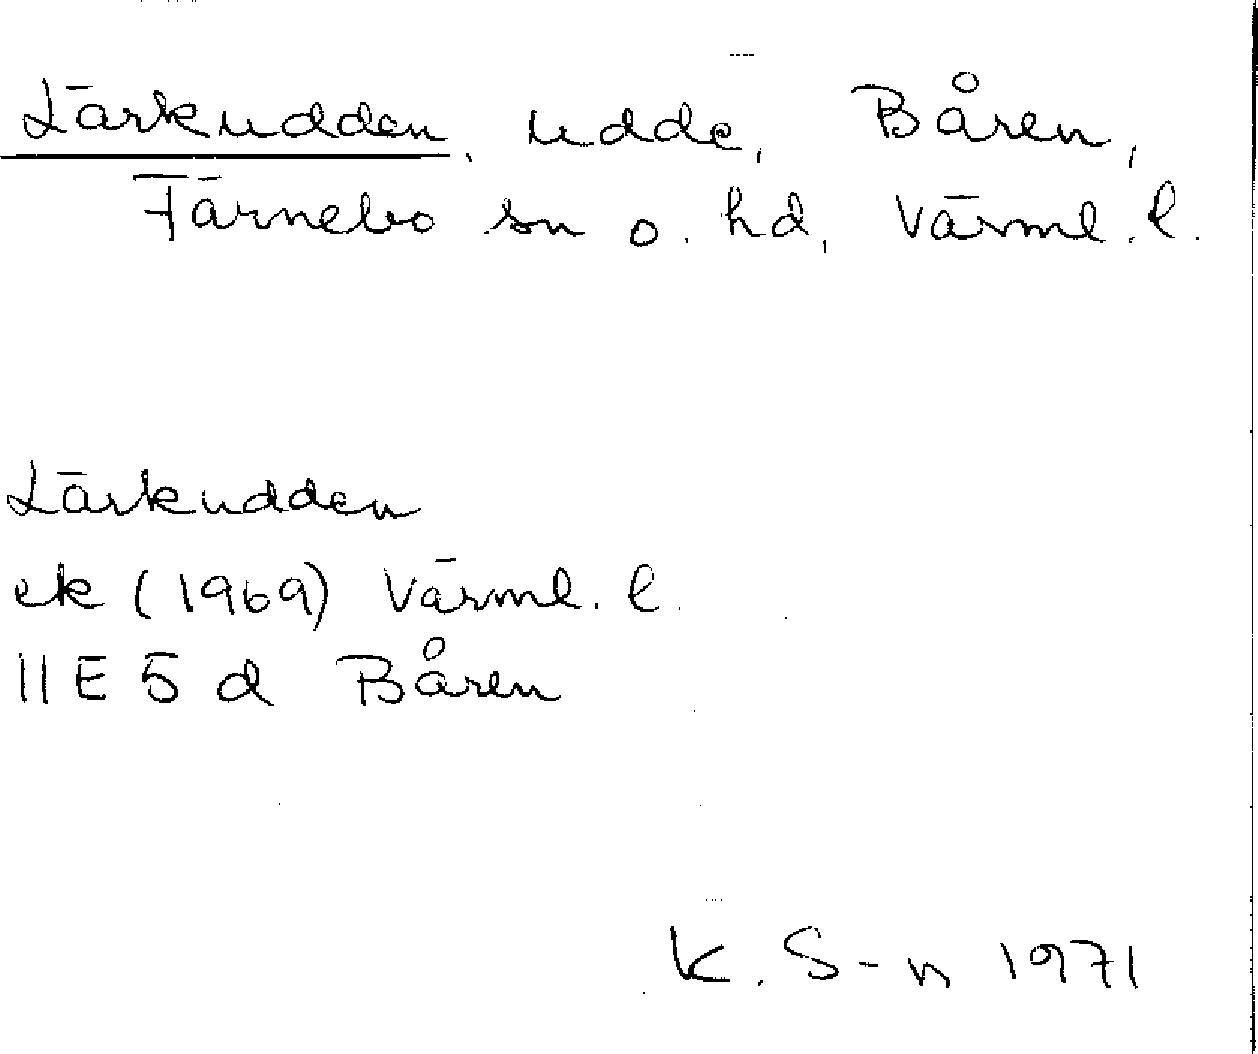 Lärkudden, udde, Båren,
Färnebo sn o. hd, Värml. l.
Lärkudden
ek (1969) Värml. l.
11E 5 d Båren
K. S-n 1971